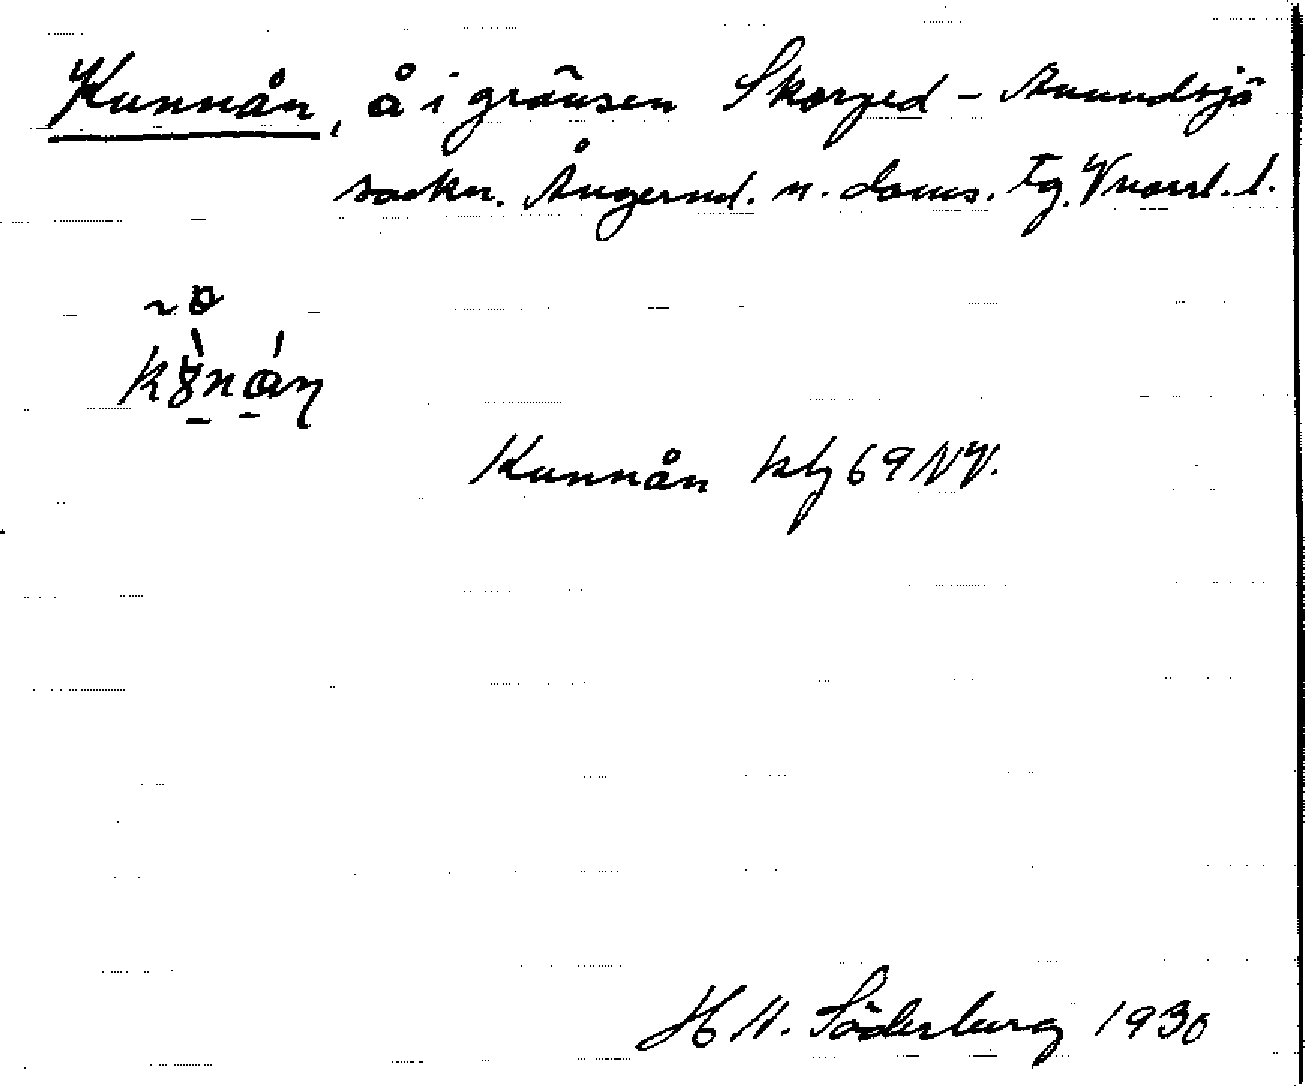 Kunnån, å i gränsen Skorped - Anundsjö
sockn. Ångermd. n. doms. Tg. Vnorrl. l.
~o
Kunnån kbl 69 NV.
H V. Söderberg 1930